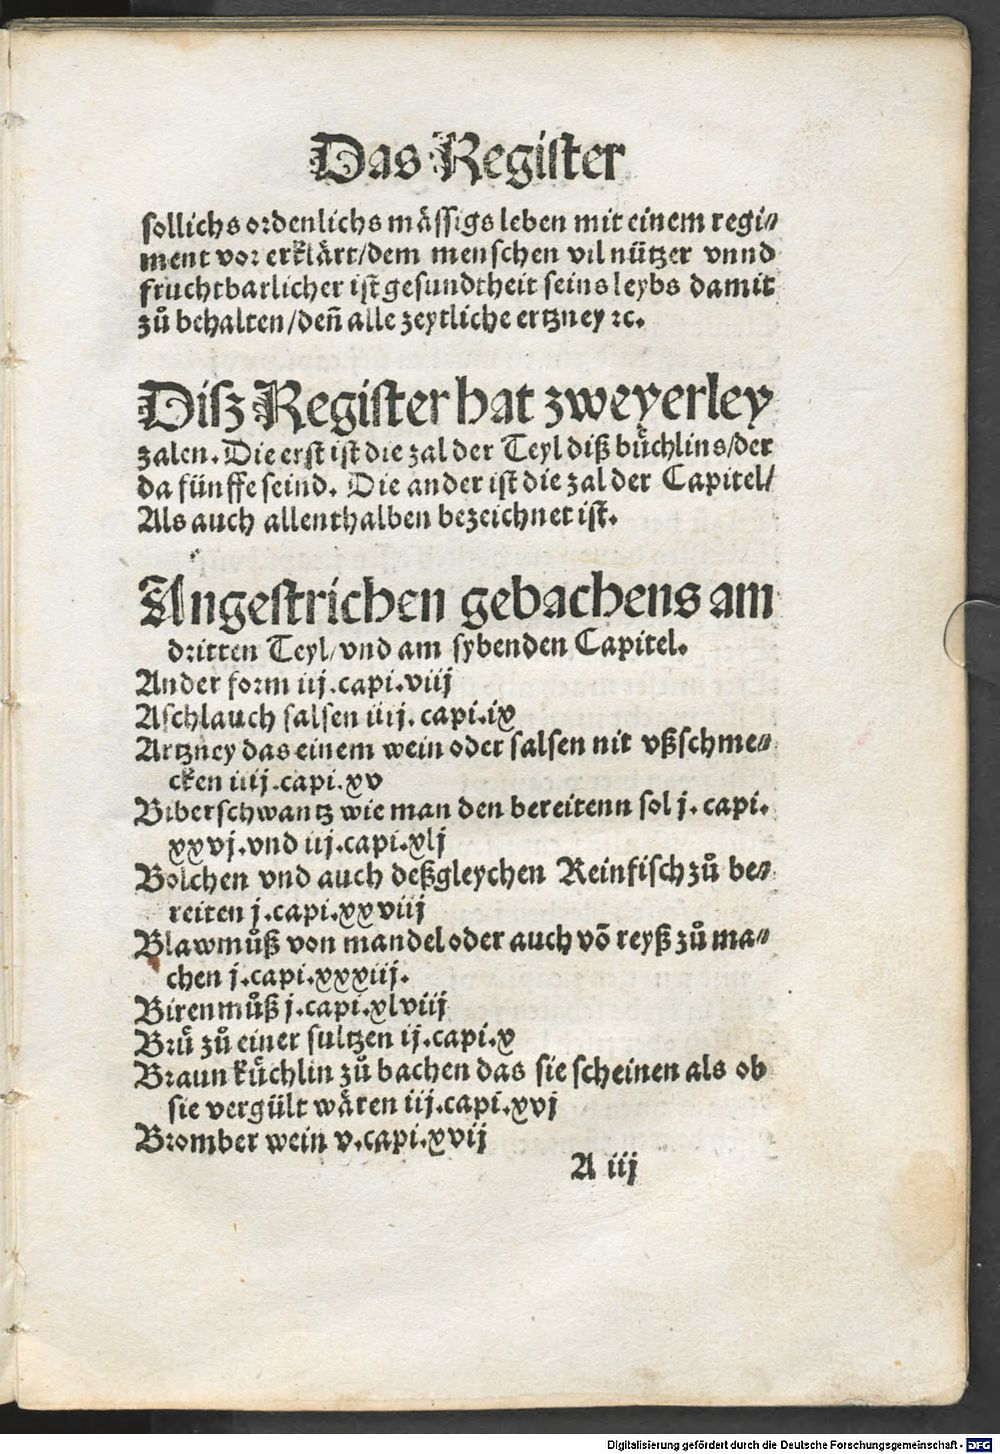 Das Register
sollichs ordenlichs mässigs leben mit einem regi⸗
ment vor erklärt/dem menschen vil nützer vnnd
fruchtbarlicher ist gesundtheit seins leybs damit
zů behalten/deñ alle zeytliche ertzney ꝛc.
Diß Register hat zweyerley
zalen. Die erst ist die zal der Teyl diß bůchlins/der
da fünffe seind. Die ander ist die zal der Capitel/
Als auch allenthalben bezeichnet ist.
Angestrichen gebachens am
dritten Teyl/vnd am sybenden Capitel.
Ander form iij.capi.viij
Aschlauch salsen iiij. capi.ix
Artzney das einem wein oder salsen nit vßschme⸗
cken iiij.capi.xv
Biberschwantz wie man den bereitenn sol j. capi.
xxvj.vnd iij.capi.xlj
Bolchen vnd auch deßgleychen Reinfisch zů be⸗
reiten j.capi.xxviij
Blawmůß von mandel oder auch võ reyß zů ma⸗
chen j.capi.xxxiij.
Birenmůß j.capi.xlviij
Brů zů einer sultzen ij.capi.x
Braun kůchlin zů bachen das sie scheinen als ob
sie vergült wären iij.capi.xvj
Bromber wein v.capi.xvij
A iij
Digitalisierung gefördert durch die Deutsche Forschungsgemeinschaft - DFG